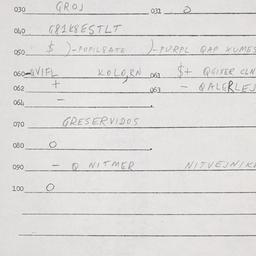 030 GROJ 031 0
040 G81K8ESTLT
050 $ )-POPILBATE )-PURPL QAP XUMES
060 QVIFL KOLO,RN 061 $+ QGIYER CLN
062 + 063 - QALERLEJ
064 -
070 GRESERVIDOS
080 0
090 - Q NITMER NITVEJNIKE
100 0